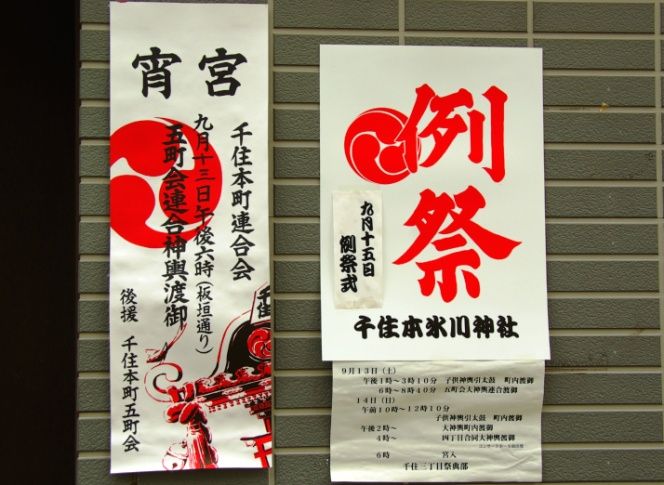 宵宮
千住本町連合会
九月十三日午後六時(板垣通り)
五町会連合神輿渡御
後援 千住本町五町会
千住
例祭
九月十五日
例祭式
千住本氷川神社
9月13日(土)
午後1時~3時10分 子供神輿引太鼓 町内渡御
6時~8時40分 五町会大神輿連合渡御
14日(日)
午前10時~12時10分
子供神輿引太鼓 町内渡御
午後2時~ 大神輿町内渡御
4時~ 四丁目合同大神輿渡御
6時 宮入
千住三丁目祭典部